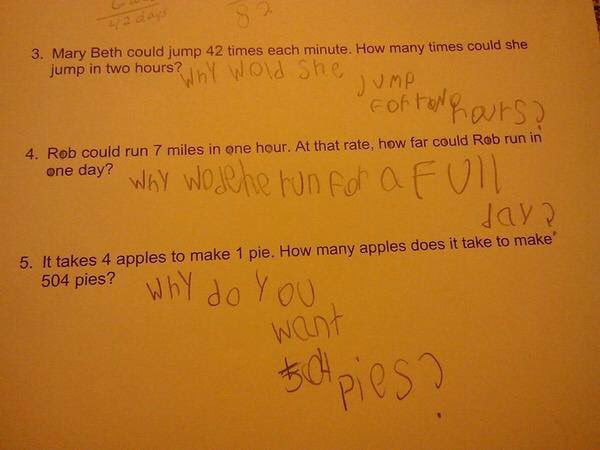 42 days
82
3. Mary Beth could jump 42 times each minute. How many times could she
jump in two hours? WhY WOld She
JUMP
hours?
4. Rob could run 7 miles in one hour. At that rate, how far could Rob run in
one day? WhY he run For a FUll
day?
5. It takes 4 apples to make 1 pie. How many apples does it take to make
504 pies? WhY do YOU
want
504 pies?